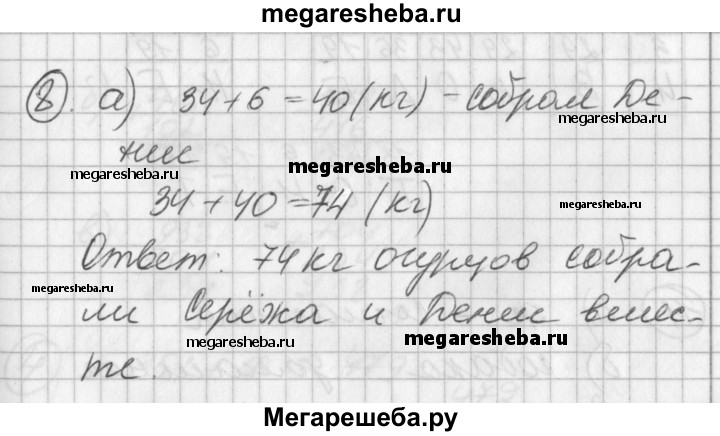 megaresheba.ru
8. а) 34+6=40(кг) - собрал Де-
megaresheba.ru
нис
megaresheba.ru
megaresheba.ru
34+40=74 (кг)
megaresheba.ru
Ответ: 74 кг огурцов собра-
megaresheba.ru
ли Серёжа и Денис вмес-
megaresheba.ru
megaresheba.ru
те.
Мегарешеба.ру